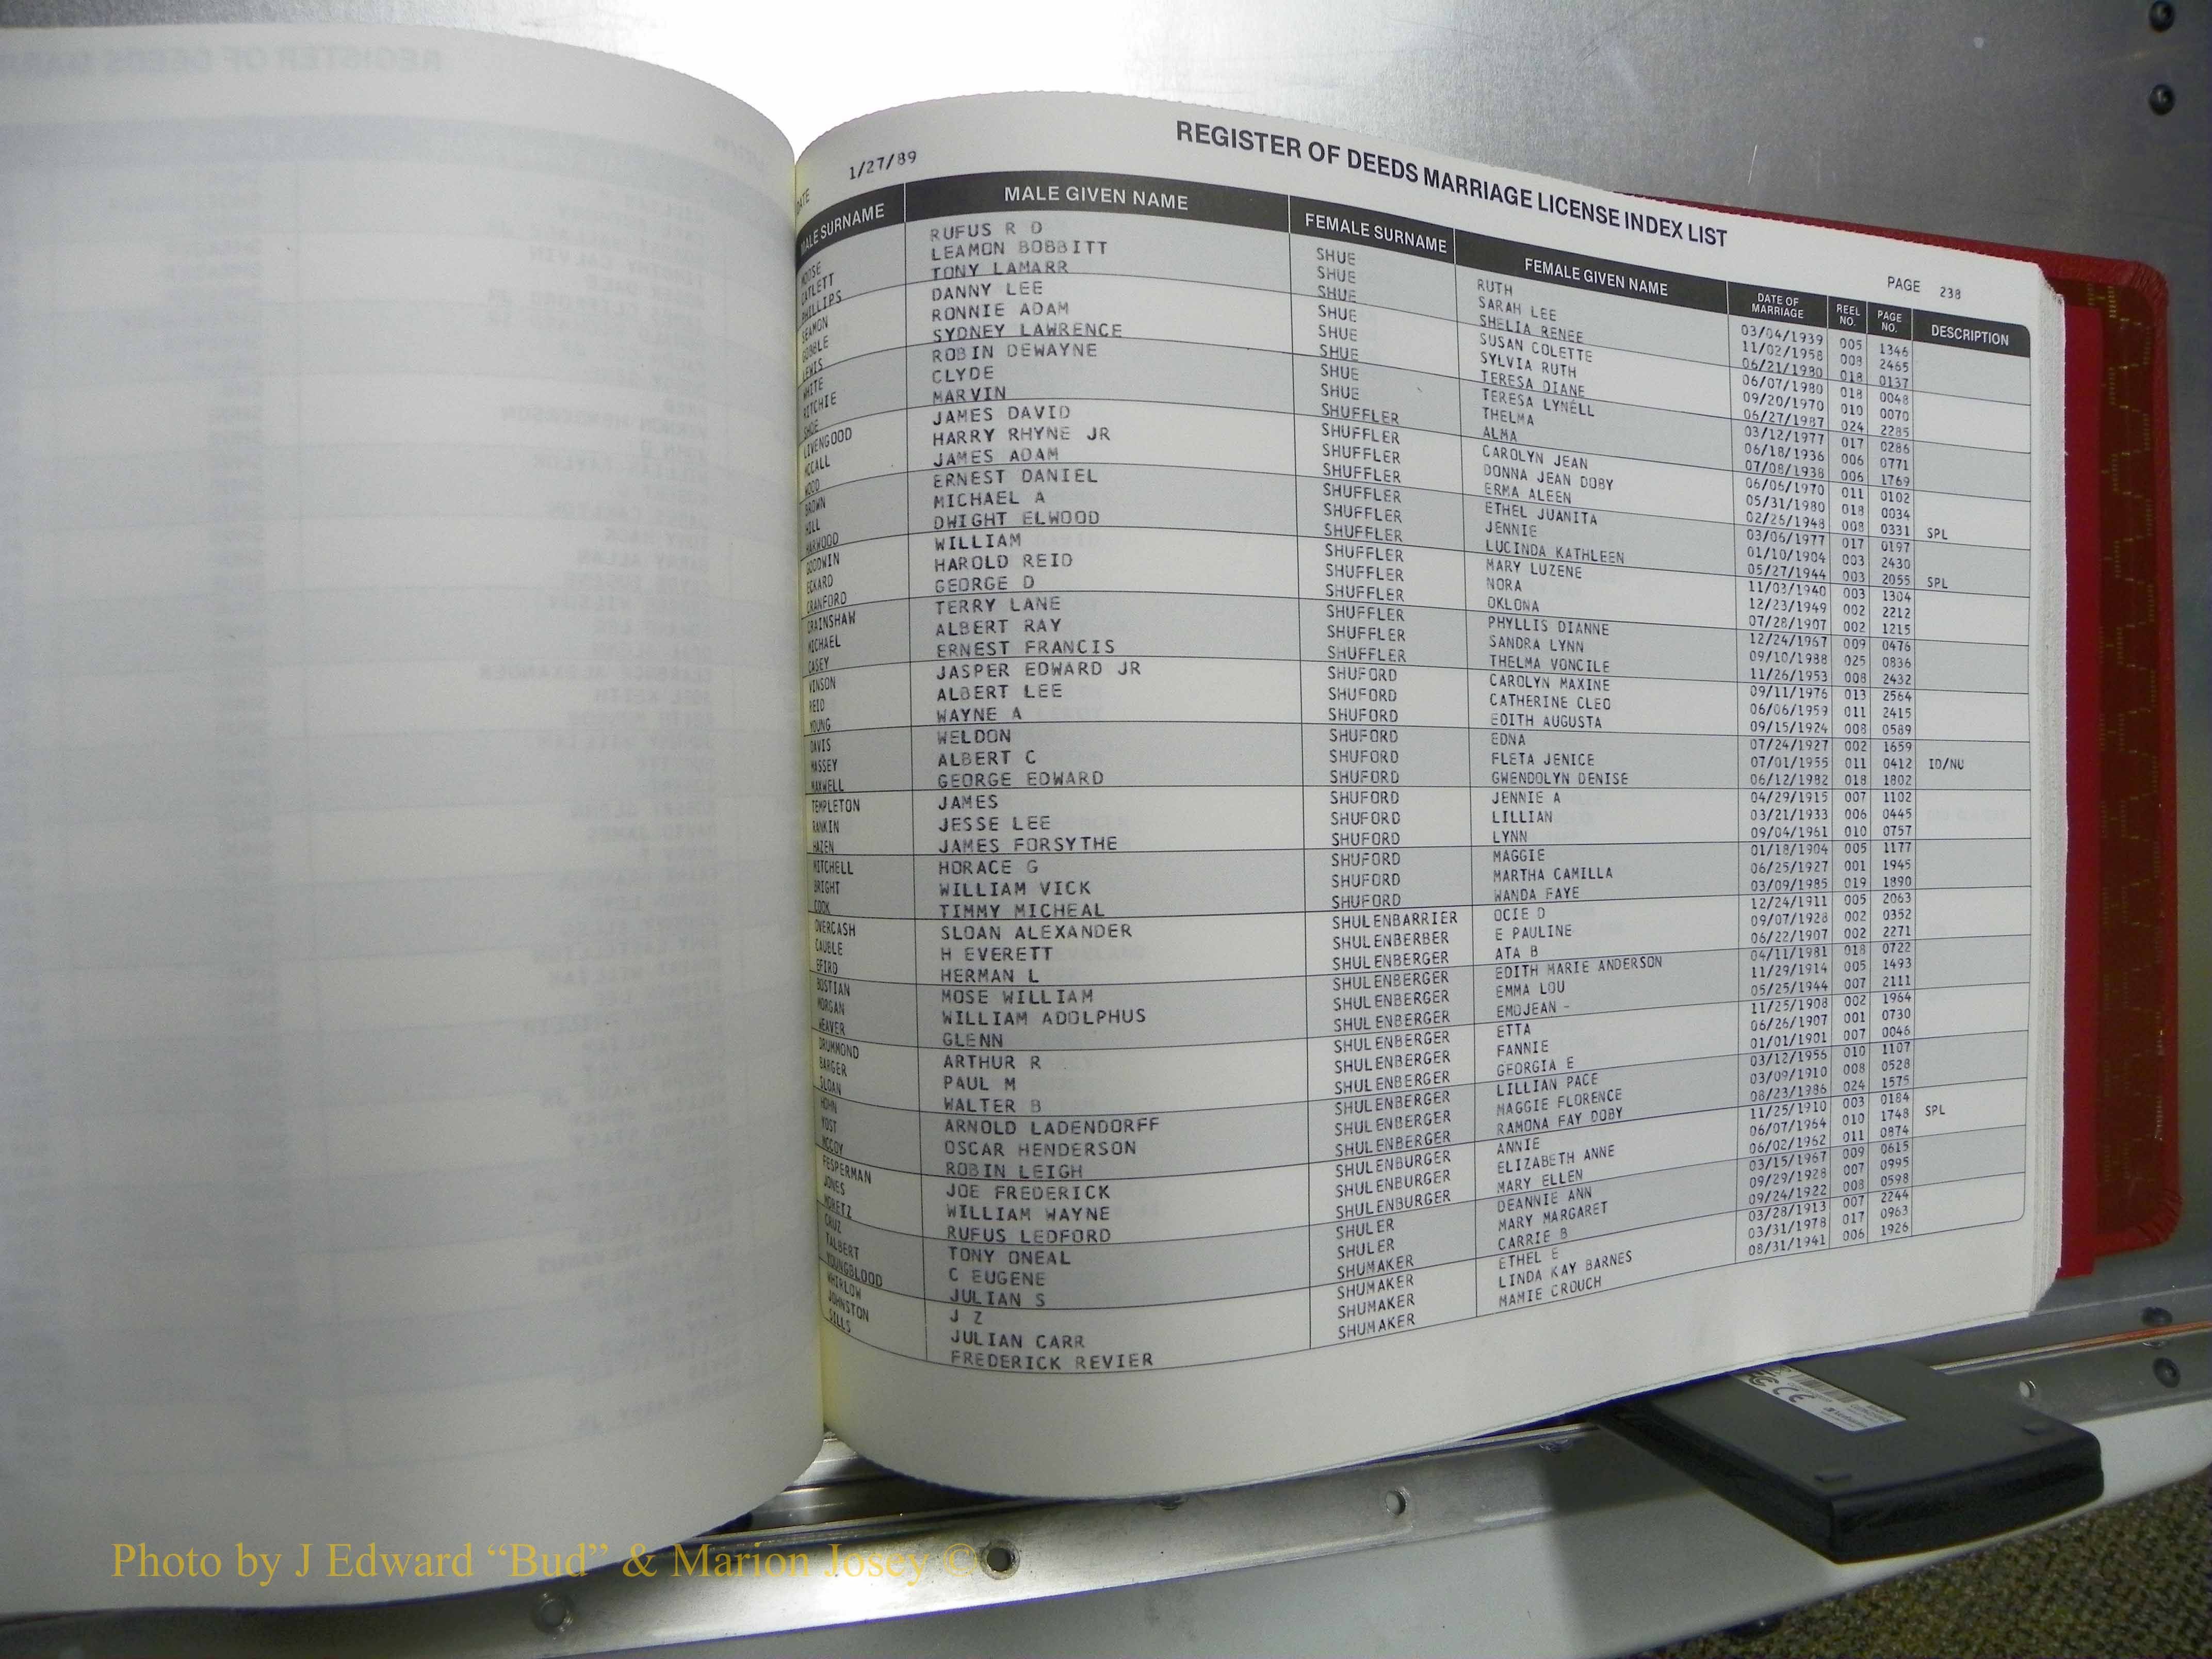 DATE 1/27/89
REGISTER OF DEEDS MARRIAGE LICENSE INDEX LIST
PAGE 238
MALE SURNAME MALE GIVEN NAME FEMALE SURNAME FEMALE GIVEN NAME DATE OF MARRIAGE REEL NO. PAGE NO. DESCRIPTION
MOOSE RUFUS R D SHUE RUTH 03/04/1939 005 1346
CATLETT LEAMON BOBBITT SHUE SARAH LEE 11/02/1958 008 2465
PHILLIPS TONY LAMARR SHUE SHELIA RENEE 06/21/1980 018 0137
SEAMON DANNY LEE SHUE SUSAN COLETTE 06/07/1980 018 0048
GOBBLE RONNIE ADAM SHUE SYLVIA RUTH 09/20/1970 010 0070
LEWIS SYDNEY LAWRENCE SHUE TERESA DIANE 06/27/1987 024 2285
WHITE ROBIN DEWAYNE SHUE TERESA LYNELL 03/12/1977 017 0286
RITCHIE CLYDE SHUE THELMA 06/18/1936 006 0771
SHOE MARVIN SHUFFLER ALMA 07/08/1938 006 1769
LIVENGOOD JAMES DAVID SHUFFLER CAROLYN JEAN 06/06/1970 011 0102
MCCALL HARRY RHYNE JR SHUFFLER DONNA JEAN DOBY 05/31/1980 018 0034
WOOD JAMES ADAM SHUFFLER ERMA ALEEN 02/26/1948 008 0331 SPL
BROWN ERNEST DANIEL SHUFFLER ETHEL JUANITA 03/06/1977 017 0197
HILL MICHAEL A SHUFFLER JENNIE 01/10/1904 003 2430
HARWOOD DWIGHT ELWOOD SHUFFLER LUCINDA KATHLEEN 05/27/1944 003 2055 SPL
GOODWIN WILLIAM SHUFFLER MARY LUZENE 11/03/1940 003 1304
ECKARD HAROLD REID SHUFFLER NORA 12/23/1949 002 2212
CRANFORD GEORGE D SHUFFLER OKLONA 07/28/1907 002 1215
CRAINSHAW TERRY LANE SHUFFLER PHYLLIS DIANNE 12/24/1967 009 0476
MICHAEL ALBERT RAY SHUFFLER SANDRA LYNN 09/10/1988 025 0836
CASEY ERNEST FRANCIS SHUFFLER THELMA VONCILE 11/26/1953 008 2432
VINSON JASPER EDWARD JR SHUFORD CAROLYN MAXINE 09/11/1976 013 2564
REID ALBERT LEE SHUFORD CATHERINE CLEO 06/06/1959 011 2415
YOUNG WAYNE A SHUFORD EDITH AUGUSTA 09/15/1924 008 0589
DAVIS WELDON SHUFORD EDNA 07/24/1927 002 1659
MASSEY ALBERT C SHUFORD FLETA JENICE 07/01/1955 011 0412 ID/NU
MAXWELL GEORGE EDWARD SHUFORD GWENDOLYN DENISE 06/12/1982 018 1802
TEMPLETON JAMES SHUFORD JENNIE A 04/29/1915 007 1102
RANKIN JESSE LEE SHUFORD LILLIAN 03/21/1933 006 0445
HAZEN JAMES FORSYTHE SHUFORD LYNN 09/04/1961 010 0757
MITCHELL HORACE G SHUFORD MAGGIE 01/18/1904 005 1177
BRIGHT WILLIAM VICK SHUFORD MARTHA CAMILLA 06/25/1927 001 1945
COOK TIMMY MICHEAL SHUFORD WANDA FAYE 03/09/1985 019 1890
OVERCASH SLOAN ALEXANDER SHULENBARRIER OCIE D 12/24/1911 005 2063
CAUBLE H EVERETT SHULENBERBER E PAULINE 09/07/1928 002 0352
EFIRD HERMAN L SHULENBERGER ATA B 06/22/1907 002 2271
BOSTIAN MOSE WILLIAM SHULENBERGER EDITH MARIE ANDERSON 04/11/1981 018 0722
MORGAN WILLIAM ADOLPHUS SHULENBERGER EMMA LOU 11/29/1914 005 1493
WEAVER GLENN SHULENBERGER EMOJEAN - 05/25/1944 007 2111
DRUMMOND ARTHUR R SHULENBERGER ETTA 11/25/1908 002 1964
BARGER PAUL M SHULENBERGER FANNIE 06/26/1907 001 0730
SLOAN WALTER B SHULENBERGER GEORGIA E 01/01/1901 007 0046
HOHN ARNOLD LADENDORFF SHULENBERGER LILLIAN PACE 03/12/1956 010 1107
YOST OSCAR HENDERSON SHULENBERGER MAGGIE FLORENCE 03/09/1910 008 0528
MCCOY ROBIN LEIGH SHULENBERGER RAMONA FAY DOBY 08/23/1986 024 1575
FESPERMAN JOE FREDERICK SHULENBURGER ANNIE 11/25/1910 003 0184
JONES WILLIAM WAYNE SHULENBURGER ELIZABETH ANNE 06/07/1964 010 1748 SPL
MORETZ RUFUS LEDFORD SHULENBURGER MARY ELLEN 06/02/1962 011 0874
CRUZ TONY ONEAL SHULER DEANNIE ANN 03/15/1967 009 0615
TALBERT C EUGENE SHULER MARY MARGARET 09/29/1928 007 0995
YOUNGBLOOD JULIAN S SHUMAKER CARRIE B 09/24/1922 008 0598
WHIRLOW J Z SHUMAKER ETHEL E 03/28/1913 007 2244
JOHNSTON JULIAN CARR SHUMAKER LINDA KAY BARNES 03/31/1978 017 0963
SILLS FREDERICK REVIER SHUMAKER MAMIE CROUCH 08/31/1941 006 1926
Photo by J Edward “Bud” & Marion Josey ©